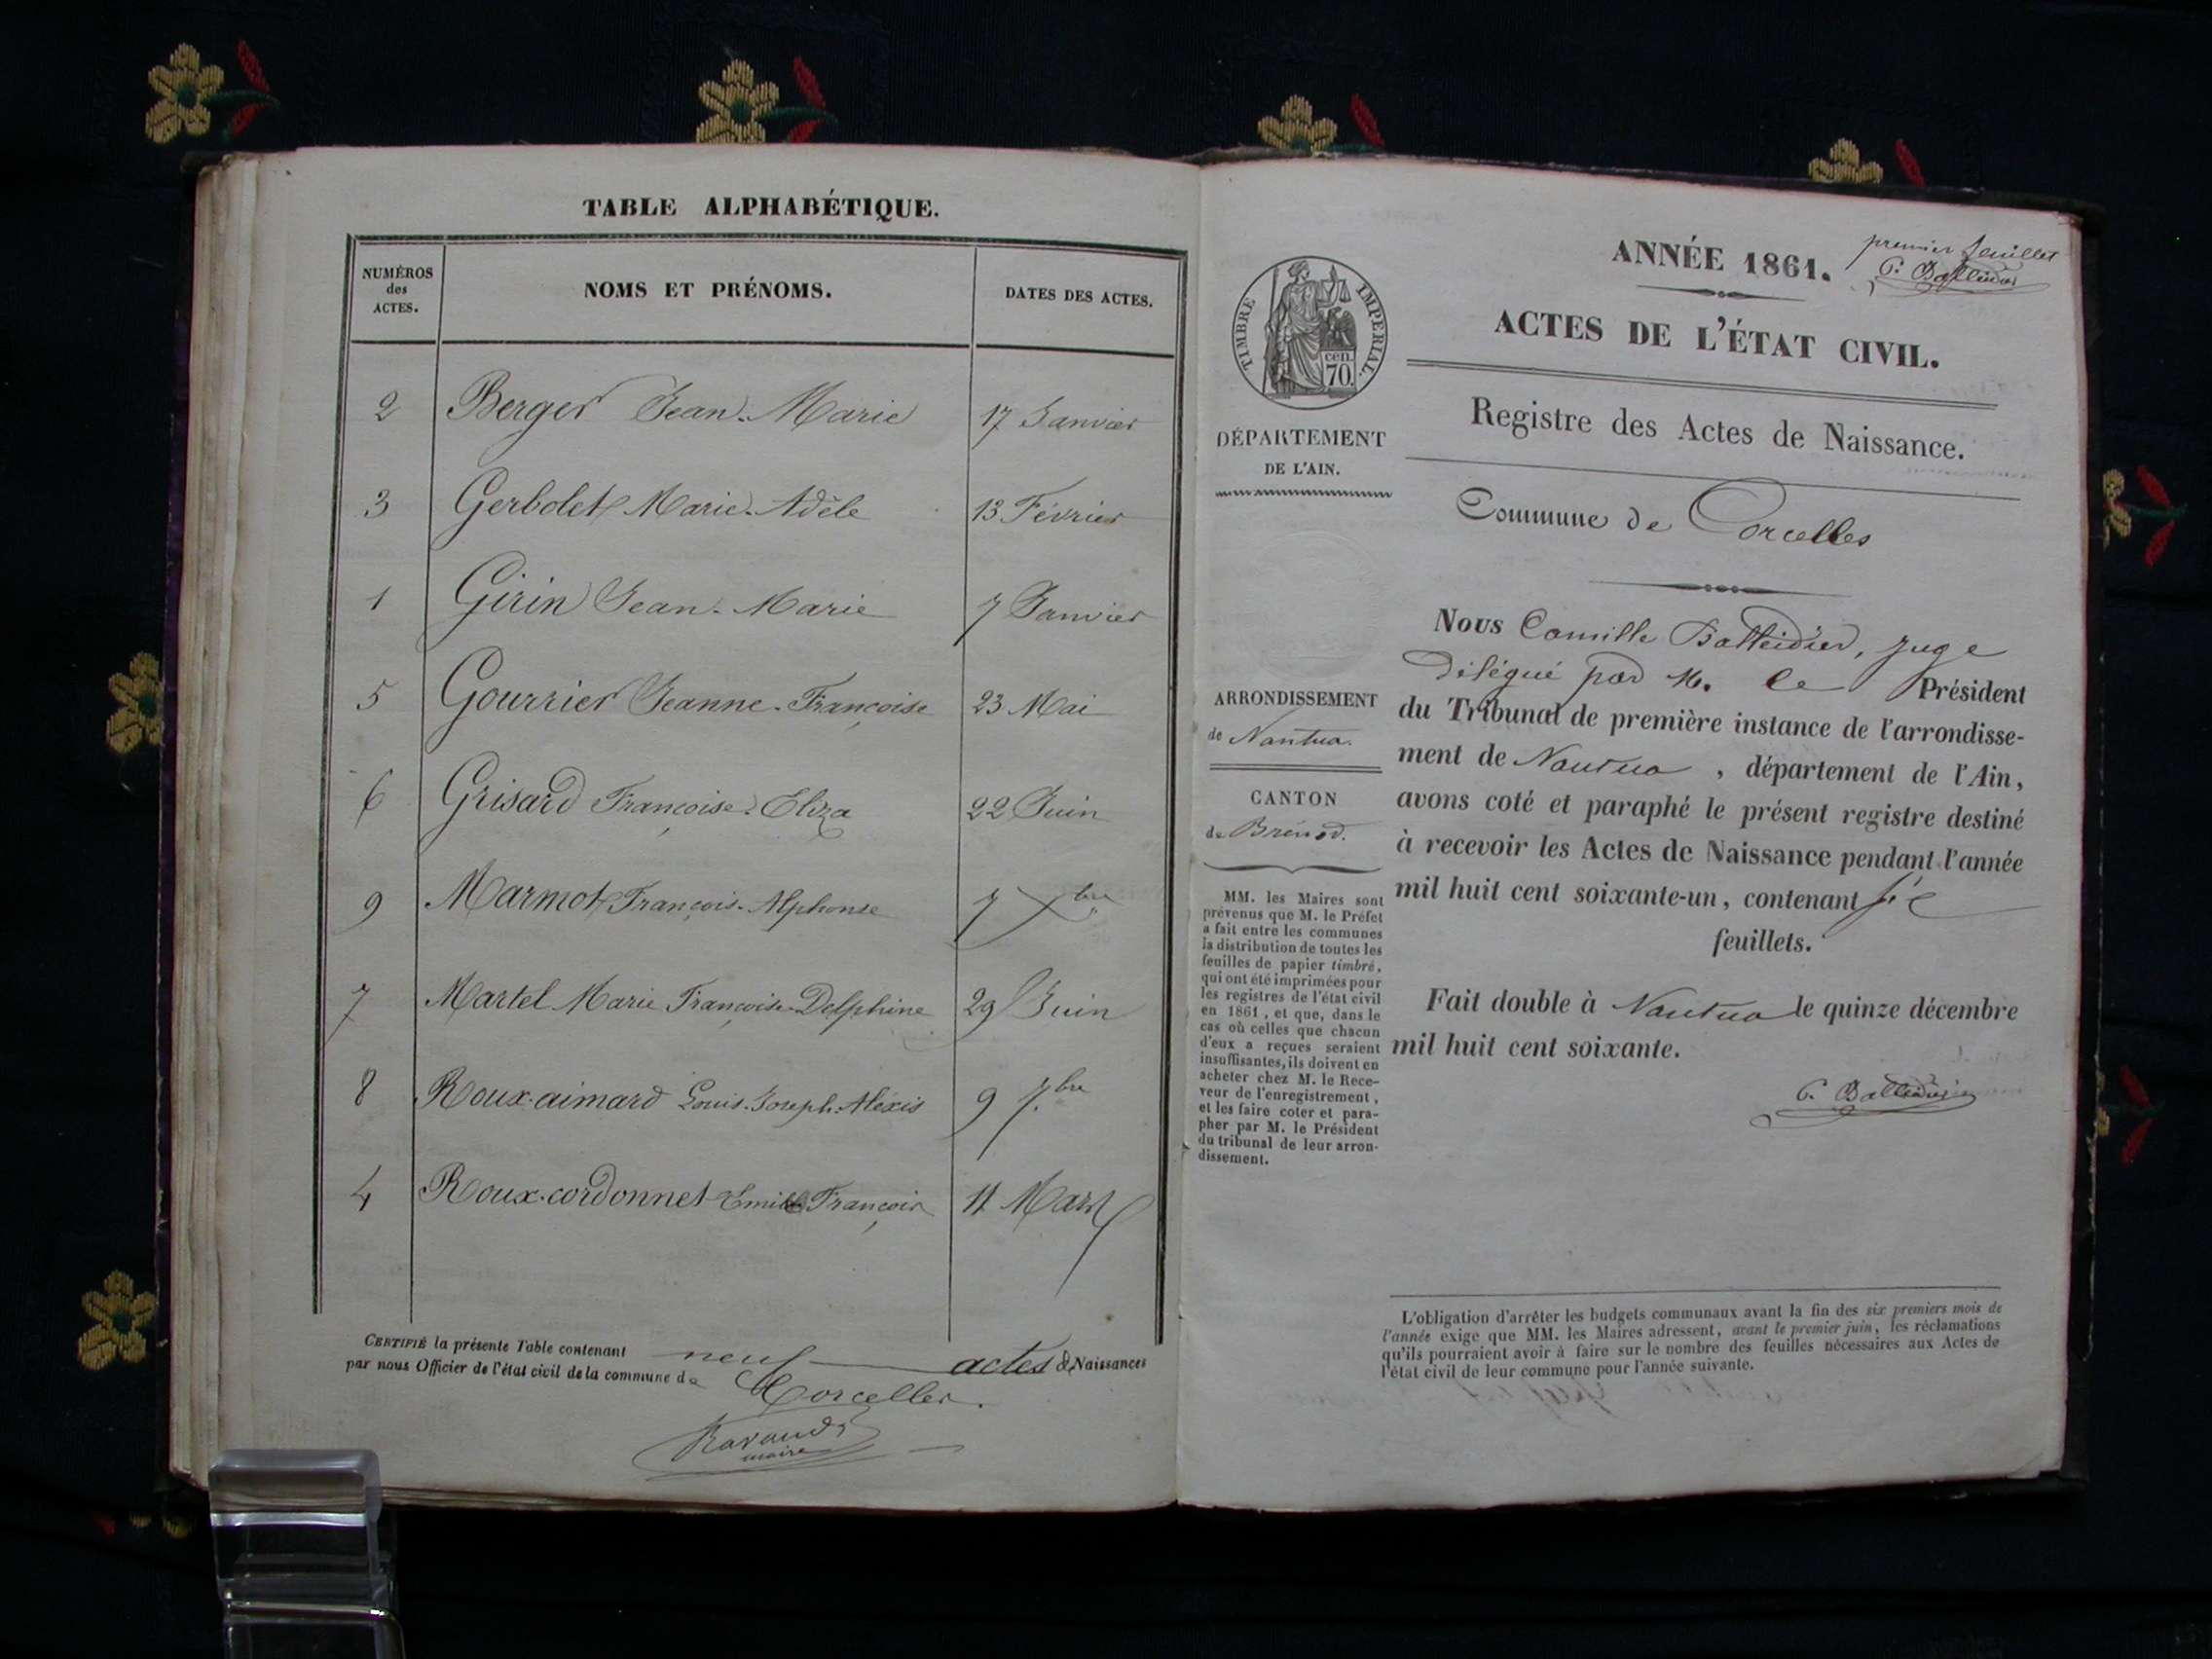 TABLE ALPHABÉTIQUE.
NUMÉROS des ACTES. NOMS ET PRÉNOMS. DATES DES ACTES.
2 Berger Jean-Marie 17 Janvier
3 Gerbolet Marie-Adèle 13 Février
1 Girin Jean-Marie 7 Janvier
5 Gourrier Jeanne-Françoise 23 Mai
6 Grisard Françoise-Eliza 22 Juin
9 Marmot François-Alphonse 7 Xbre
7 Martel Marie Françoise-Delphine 29 Juin
8 Roux-aimard Louis-Joseph-Aléxis 9 7bre
4 Roux-cordonnet Emile François 11 Mars
CERTIFIÉ la présente Table contenant neuf actes de Naissances
par nous Officier de l'état civil de la commune de Corcelles.
Ravaud
maire
premier feuillet
C. Balleidier
ANNÉE 1861.
ACTES DE L'ÉTAT CIVIL.
TIMBRE IMPERIAL.
cen.
70.
DÉPARTEMENT
DE L'AIN.
Registre des Actes de Naissance.
Commune de Corcelles
ARRONDISSEMENT
de Nantua.
CANTON
de Brénod.
MM. les Maires sont
prévenus que M. le Préfet
a fait entre les communes
la distribution de toutes les
feuilles de papier timbré,
qui ont été imprimées pour
les registres de l'état civil
en 1861, et que, dans le
cas où celles que chacun
d'eux a reçues seraient
insuffisantes, ils doivent en
acheter chez M. le Rece-
veur de l'enregistrement,
et les faire coter et para-
pher par M. le Président
du tribunal de leur arron-
dissement.
Nous Camille Balleidier, juge
délégué par M. le Président
du Tribunal de première instance de l'arrondisse-
ment de Nantua, département de l'Ain,
avons coté et paraphé le présent registre destiné
à recevoir les Actes de Naissance pendant l'année
mil huit cent soixante-un, contenant
feuillets.
Fait double à Nantua le quinze décembre
mil huit cent soixante.
C. Balleidier
L'obligation d'arrêter les budgets communaux avant la fin des six premiers mois de
l'année exige que MM. les Maires adressent, avant le premier juin, les réclamations
qu'ils pourraient avoir à faire sur le nombre des feuilles nécessaires aux Actes de
l'état civil de leur commune pour l'année suivante.